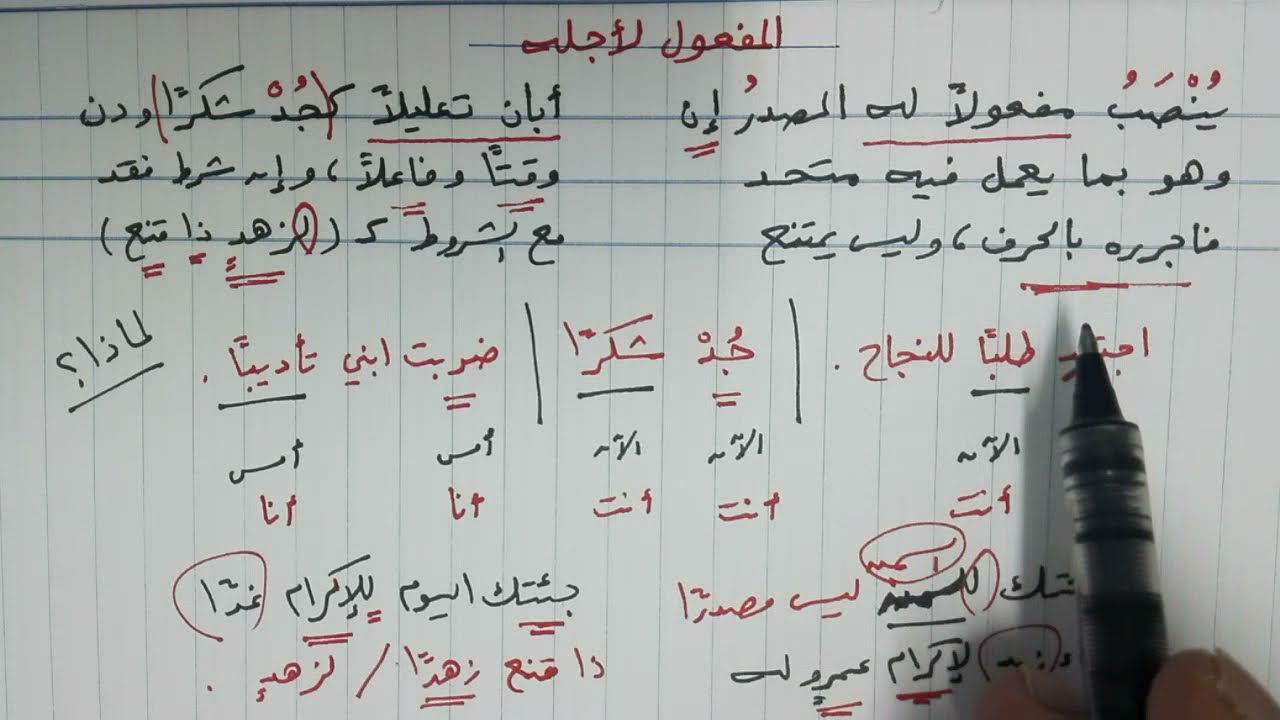 المفعول لأجله
يُنْصَبُ مفعولاً له المصدرُ إن أبان تعليلاً كـ(جُدْ شكرًا) ودن
وهو بما يعمل فيه متحد وقتًا وفاعلاً، وإن شرط فقد
فاجرره بالحرف، وليس يمتنع مع الشروط كـ (لزهدٍ ذا قنع)
اجتهد طلبًا للنجاح . جُدْ شكرًا ضربت ابني تأديبًا . لماذا؟
الآن الآن الآن أمس أمس
أنت أنت أنت أنا أنا
ليس مصدرًا جئتك اليوم للإكرام غدًا
لإكرام عمرو له ذا قنع زهدًا / لزهدٍ .